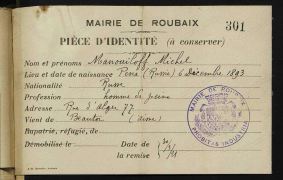 MAIRIE DE ROUBAIX
301
PIÈCE D'IDENTITÉ (à conserver)
Nom et prénoms Manouiloff Michel
Lieu et date de naissance (Russie) 6 Décembre 1893
Nationalité Russe
Profession homme de peine
Adresse Rue d'Alger 77
Vient de Beautor (Aisne)
Rapatrié, réfugié, de
Démobilisé le
Date de la remise
MAIRIE DE ROUBAIX
PROBITAS INDUSTRIA